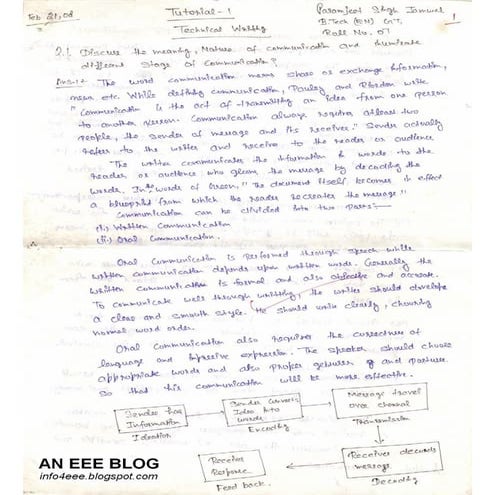 Feb 21, 08
Tutorial-1
Technical Writing
Paramjeet Singh Jamwal
B.Tech (EN) G.T.
Roll No. 07
1
Q.1 Discuss the meaning, Nature of communication and illuminate
different stage of communication?
Ans:1:- The word communication means share or exchange information,
news etc. While defining communication, Pauley and Riordan write
"Communication is the act of transmitting an idea from one person
to another person. Communication always requires atleast two
people, the sender of message and its receiver." Sender actually
refers to the writer and receive to the reader or audience.
The written communicates the information & words to the
reader or audience who gleans the message by decoding the
words. In words of Green, "The document itself becomes in effect
a blueprint from which the reader recreates the message."
Communication can be divided into two parts:—
(i) Written Communication
(ii) Oral Communication.
Oral Communication is Performed through speech while
written communication depends upon written words. Generally the
written communication is formal and also objective and accurate.
To communicate well through writting, the writer should develope
a clear and smooth style. He should write clearly, choosing
normal word order.
Oral Communication also requires the correctness of
language and impressive expression. The speaker should choose
appropriate words and also proper gestures and posture
so that this communication will be more effective.
Sender has
Information
Ideation
Sender converts
Idea into
words
Encoding
Message travel
over channel
Transmission
Receiver
Response
Feed back.
Receiver decords
message
Decoding
AN EEE BLOG
info4eee.blogspot.com